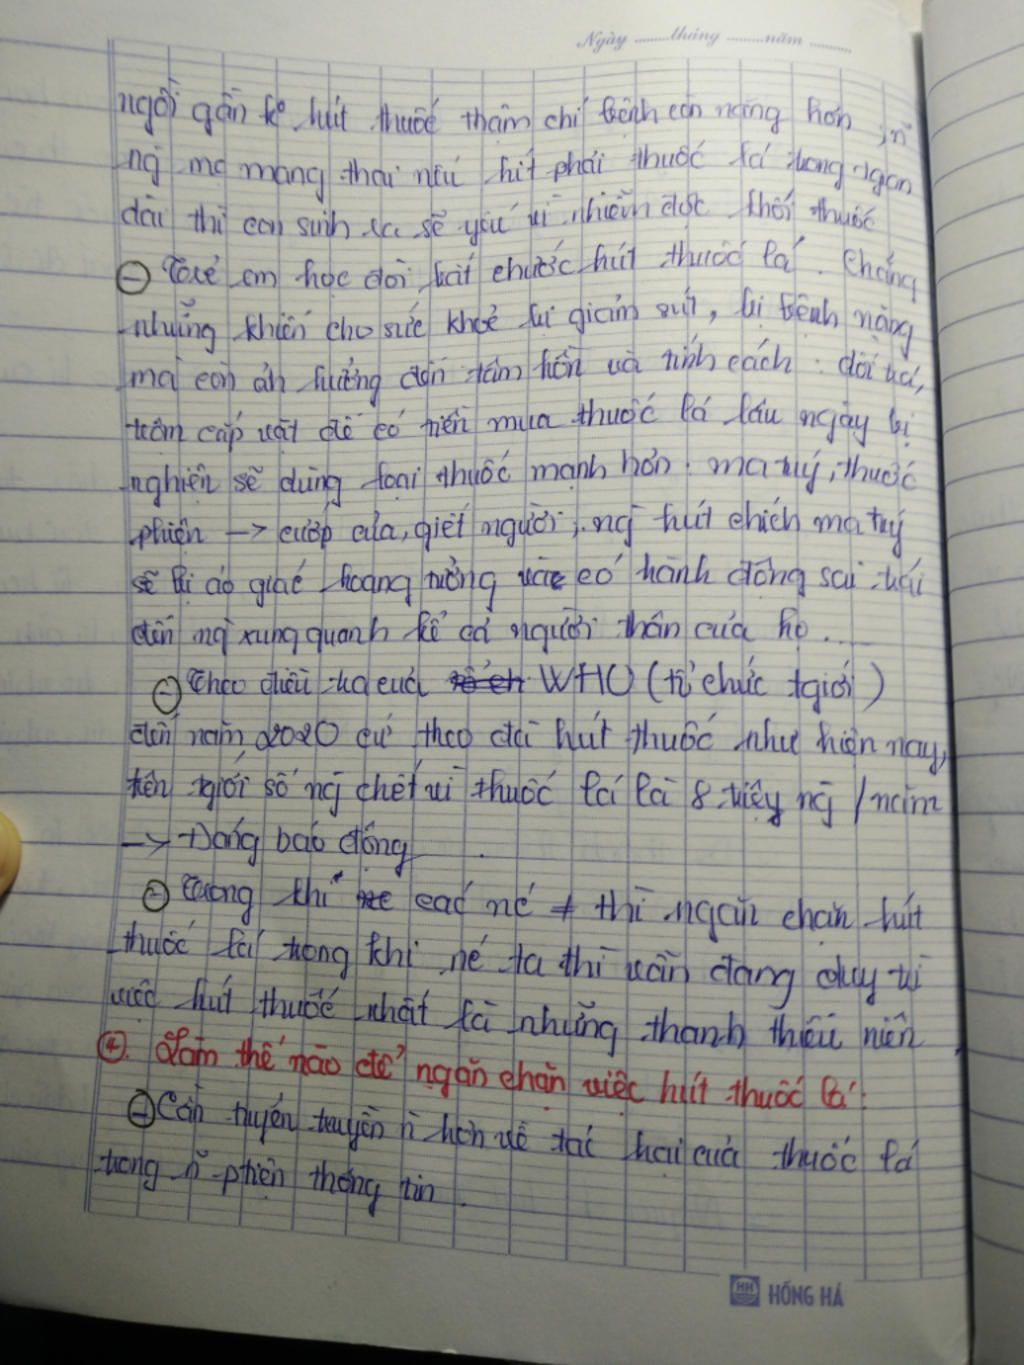 Ngày ........tháng ........năm .........
ngồi gần kẻ hút thuốc thậm chí bệnh còn nặng hơn, n~
ng mẹ mang thai nếu hít phải thuốc lá trong tgan
dài thì con sinh ra sẽ yếu vì nhiễm độc khói thuốc
- Trẻ em học đòi, bắt chước hút thuốc lá. Chẳng
những khiến cho sức khoẻ bị giảm sút, bị bệnh nặng
mà còn ảnh hưởng đến tâm hồn và tính cách: dối trá,
trộm cắp vặt để có tiền mua thuốc lá lâu ngày bị
nghiện sẽ dùng loại thuốc mạnh hơn: ma tuý, thuốc
phiện -> cướp của, giết người, ng hút chích ma tuý
sẽ bị ảo giác hoang tưởng và có hành động sai trái
đến ng xung quanh kể cả người thân của họ...
- Theo điều tra của WHO (tổ chức tgiới)
đến năm 2020 cứ theo đà hút thuốc như hiện nay,
trên tgiới số ng chết vì thuốc lá là 8 triệu ng / năm
-> Đáng báo động
- Trong khi các nc ≠ thì ngăn chặn hút
thuốc lá trong khi nc ta thì vẫn đang duy trì
việc hút thuốc nhất là những thanh thiếu niên
4. Làm thế nào để ngăn chặn việc hút thuốc lá:
- Cần tuyên truyền n~ hơn về tác hại của thuốc lá
trong n~ phiên thông tin.
HH HỒNG HÀ